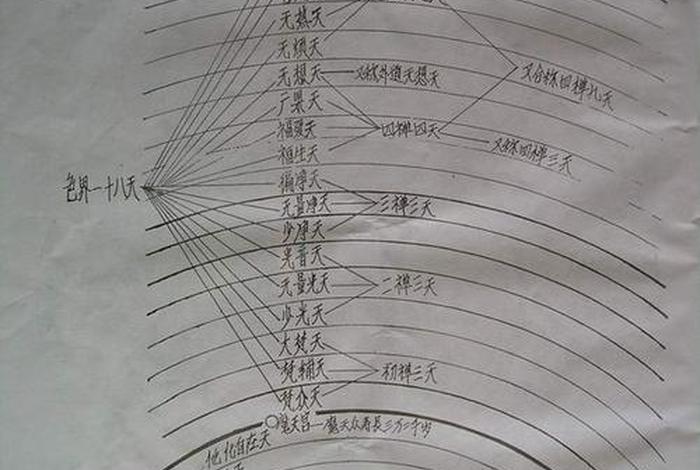 无热天
无烦天
无想天 又称外道无想天
又合称四禅九天
广果天
福爱天 四禅四天
福生天 又称四禅三天
遍净天
色界一十八天
无量净天 三禅三天
少净天
光音天
无量光天 二禅三天
少光天
大梵天
梵辅天 初禅三天
梵众天
魔天宫 魔天众寿长三万二千岁
他化自在天